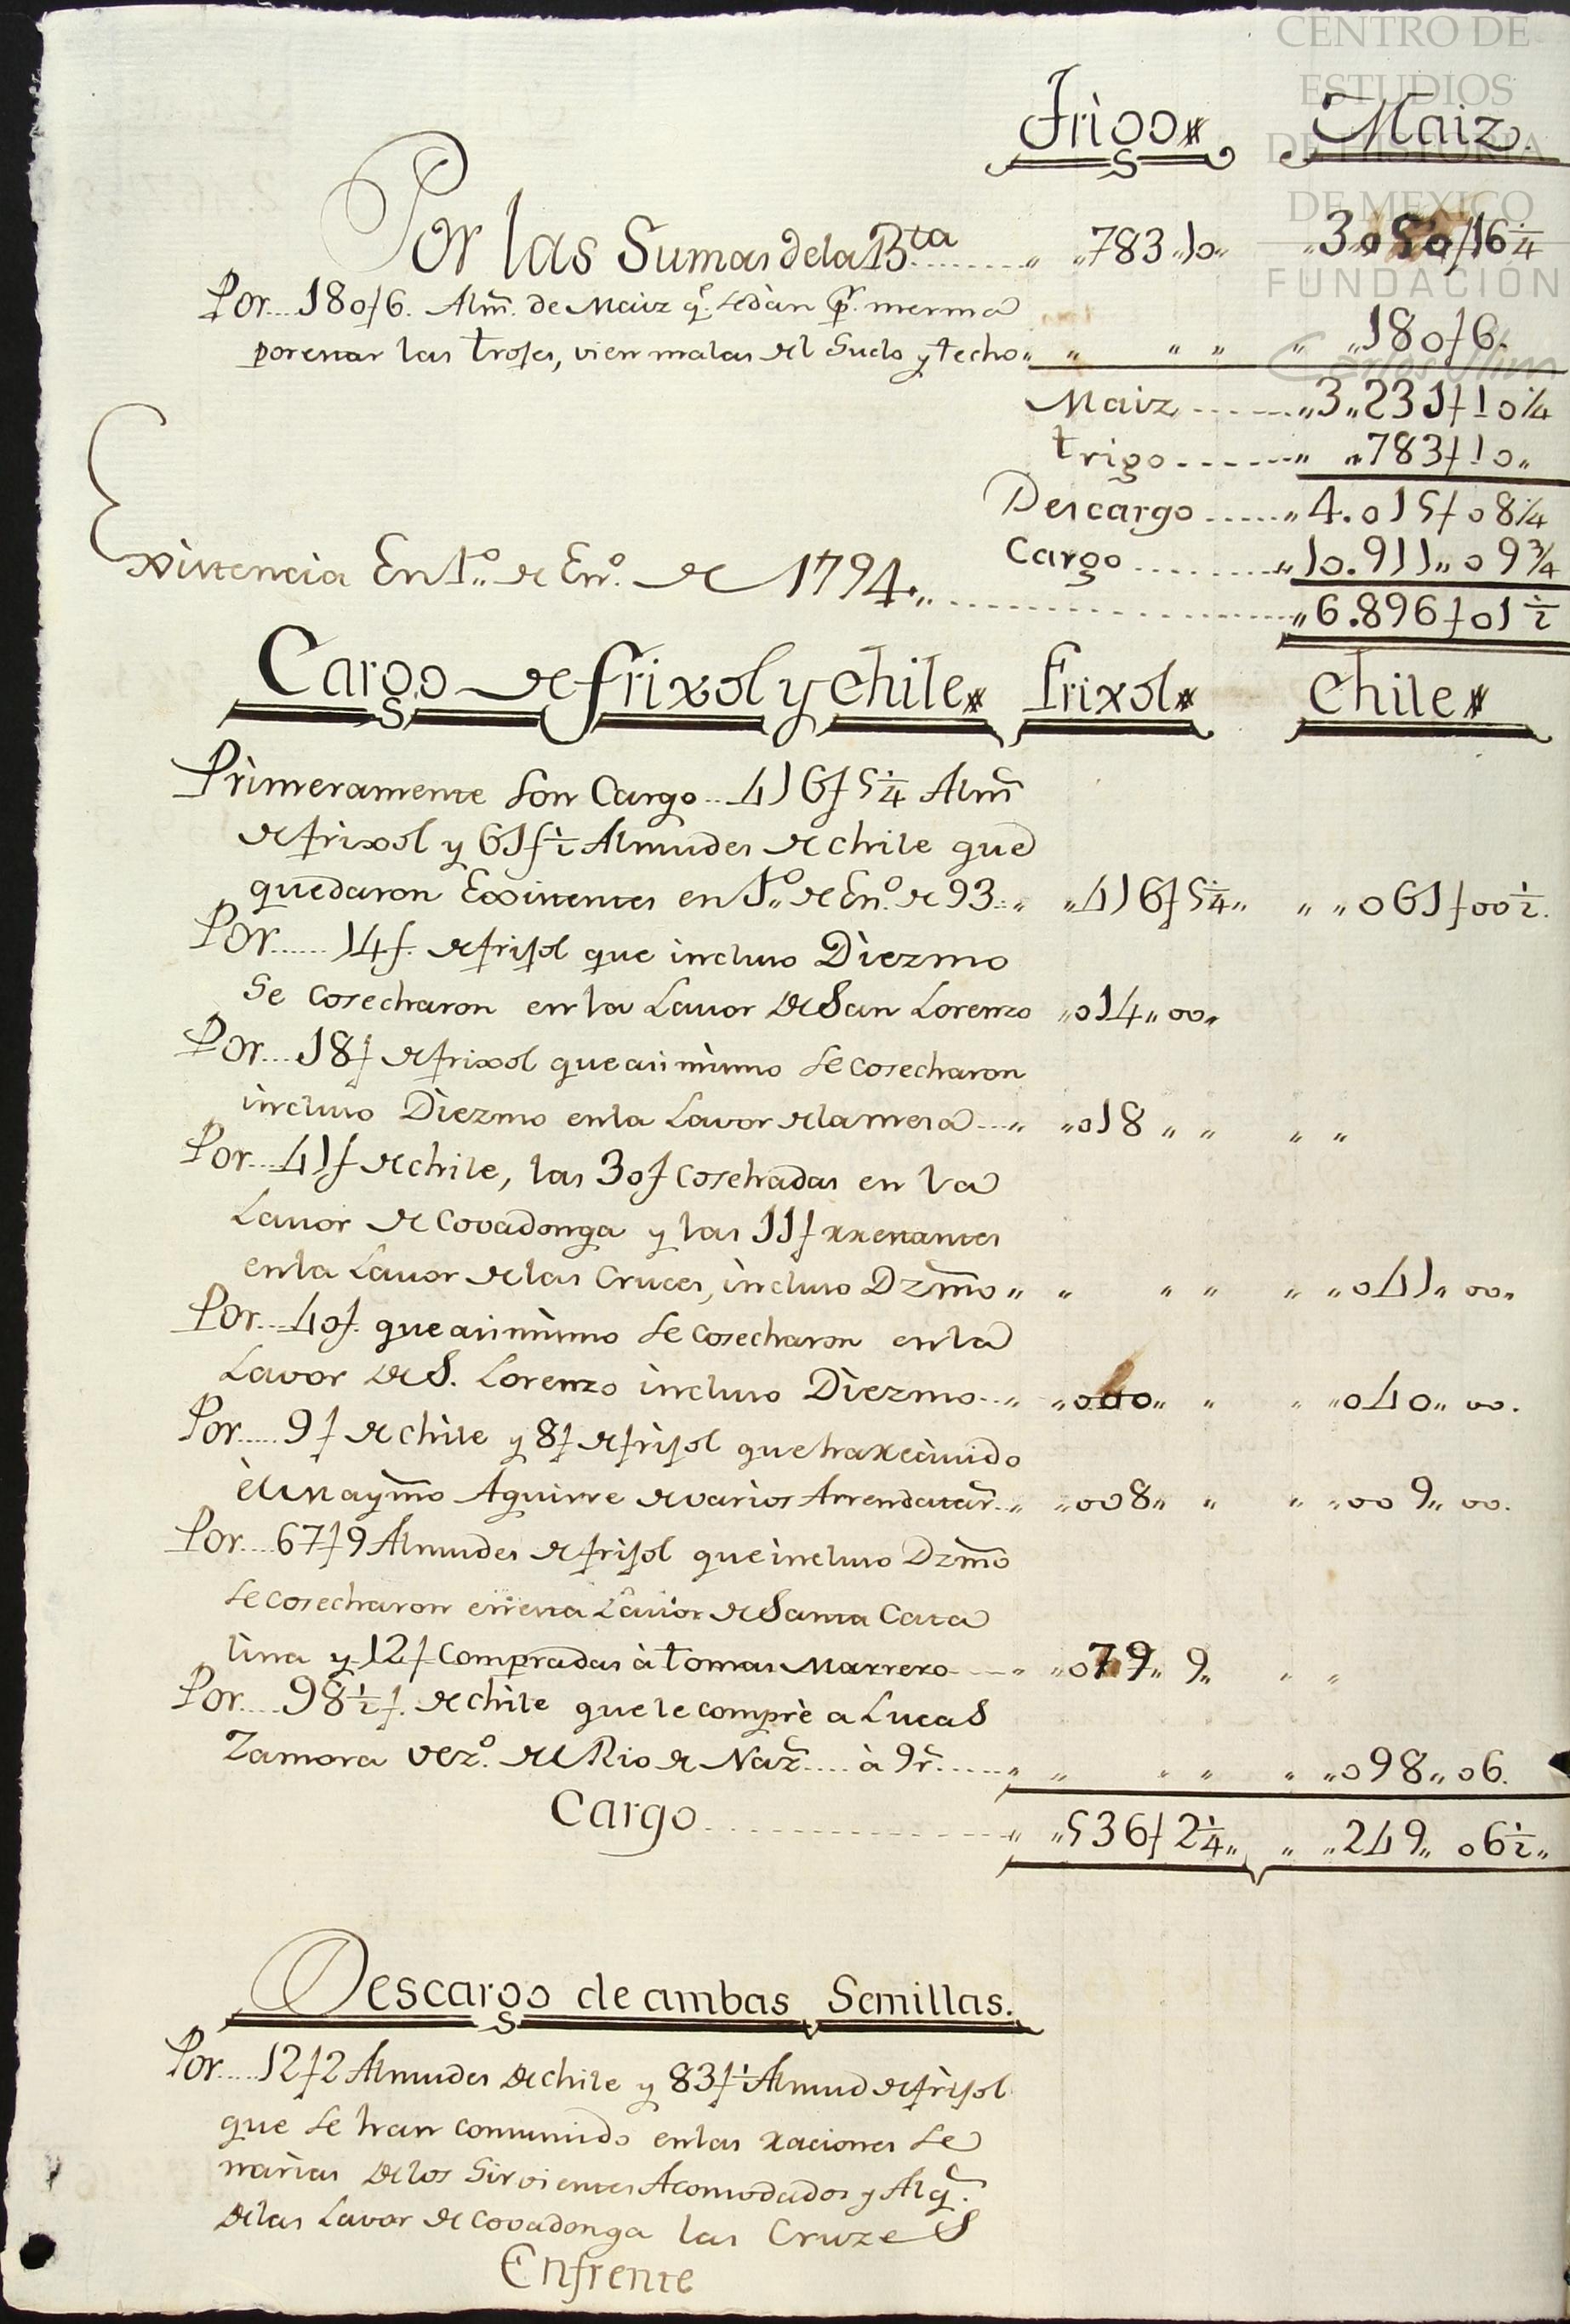 CENTRO DE
ESTUDIOS
DE HISTORIA
DE MEXICO
FUNDACIÓN
Carlos Slim
Trigo Maiz.
Por las Sumas dela B.ta ........ „ „783„10„ „3„050/16 ¼
Por... 180f6. Alm̃. de Maiz q.e sedàn p.r merma
porestar las trojes, vien malas del Suelo y techo„ „ „ „ „ „180f6.
Maiz ......„3„231f10¼
trigo.......„ „783f10„
Descargo .....„4.015f08¼
Cargo ........„10.911„09¾
Existencia En 1.o de En.o de 1794„ ........ „6.896f01½
Cargo de frixol y chile Frixol Chile
Primeramente Son Cargo.. 416f5¼ Alm̃
de frixol y 61f½ Almudes de chile que
quedaron Existentes en 1.o de En.o de 93..„ „416f5¼„ „ „061f00½.
Por...... 14f. de frijol que incluso Diezmo
Se cosecharon en la Lavor de San Lorenzo „014„00„
Por... 18f de frixol que asi mismo se cosecharon
incluso Diezmo en la Lavor de la mesa...„ „018„ „ „ „
Por... 41f de chile, las 30f cosehadas en la
Lavor de Covadonga y las 11f rrestantes
en la Lavor de las Cruces, incluso Dzm̃o„ „ „ „ „ „041„00„
Por... 40f. que asi mismo se cosecharon en la
Lavor de S. Lorenzo incluso Diezmo..„ „000„ „ „ „040„00.
Por..... 9f de chile y 8f de frijol que ha rrecivido
èl maym̃o Aguirre de varios Arrendatar̃..„ „008„ „ „ „009„00.
Por.... 67f9 Almudes de frijol que incluso Dzm̃o
se cosecharon en esta Lavor de Santa Cata
lina y 12f compradas à tomas Marrero.....„ „079„9„ „ „
Por.... 98½f. de chile que le comprè a Lucas
Zamora vez.o del Rio de Naz̃.... à 9r̃......„ „ „ „ „ „098„06.
Cargo ............„ „536f2¼„ „ „249„06½„
Descargo de ambas Semillas.
Por.....12f2 Almudes de chile y 83f½ Almud de frijol
que se han consumido en las raciones se
marias de los Sirvientes Acomodados y Alq̃.
de las Lavor de Covadonga las Cruzes
Enfrente